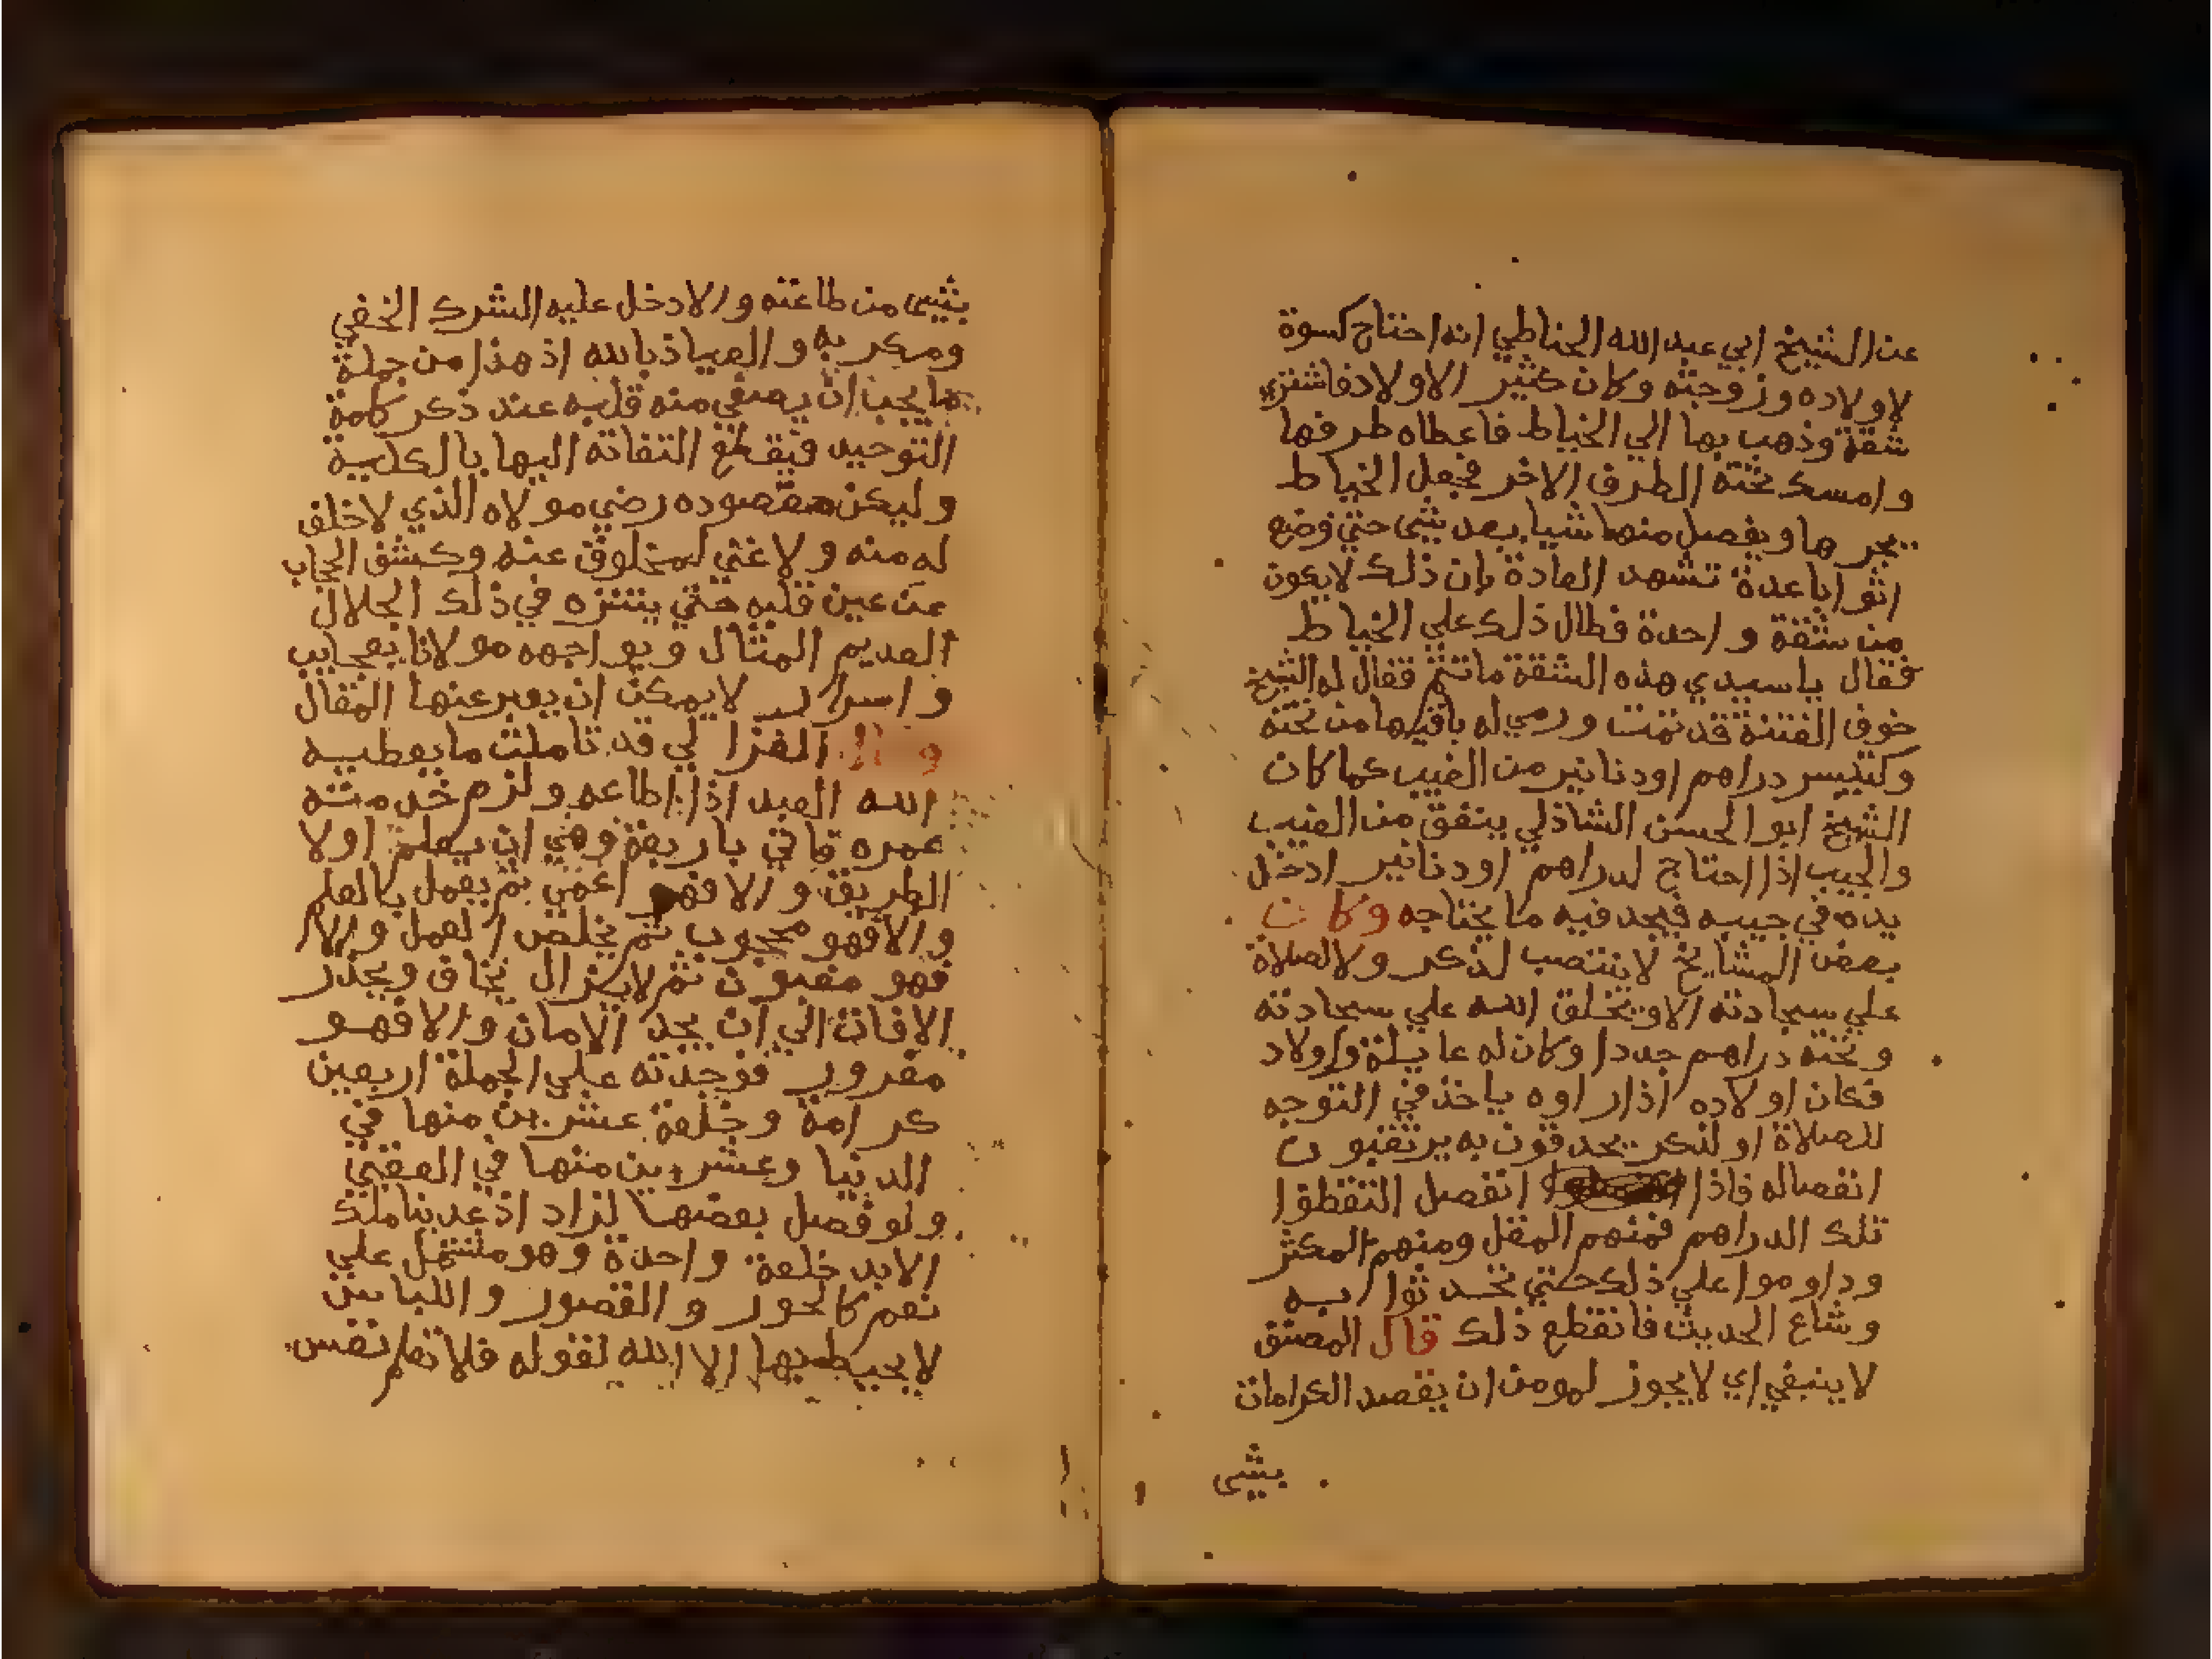 عن الشيخ ابي عبد الله الخياطي انه احتاج كسوة
لاولاده وزوجته وكان كثير الاولاد فاشتري
شقة وذهب بها الي الخياط فاعطاه طرفها
وامسك تحته الطرف الاخر فجعل الخياط
يجرها ويفصل منها شيا بعد شي حتي فضع
اثوابا عدة تشهد العادة بان ذلك لايكون
من شقة واحدة فطال ذلك علي الخياط
فقال ياسيدي هذه الشقة ماتتم فقال له الشيخ
خوف الفتنة قد تمت ورمي له باقيها من تحته
وكتيسر دراهم اودنانير من الغيب كما كان
الشيخ ابو الحسن الشاذلي ينفق من الغيب
والجيب اذا احتاج لدراهم اودنانير ادخل
يده في جيبه فيجد فيه ما يحتاجه وكان
بعض المشايخ لاينتصب لذكر ولالصلاة
علي سجادته الاويخلق الله علي سجادته
وتحته دراهم جددا وكان له عايلة واولاد
فكان اولاده اذاراوه ياخذ في التوجه
للصلاة اولذكر يحدقون به يرتقبون
انفصاله فاذا انفصل التقطوا
تلك الدراهم فمنهم المقل ومنهم المكثر
وداوموا علي ذلك حتي تحدثوا به
وشاع الحديث فانقطع ذلك قال المصنق
لاينبغي اي لايجوز لمومن ان يقصد الكرامات
بشي
بشي من طاعته والادخل عليه الشرك الخفي
ومكر به والعياذ بالله اذ هذا من جملة
مايجب ان يصفي منه قلبه عند ذكر كلمة
التوحيد فيقطع التفاته اليها بالكلية
وليكن مقصوده رضي مولاه الذي لاخلف
له منه ولاغني لمخلوق عنه وكشف الحجاب
عن عين قلبه حتي يتنزه في ذلك الجلال
العديم المثال ويواجهه مولانا بعجايب
واسرار لايمكن ان يعبر عنها المقال
وال الغزالي قد تاملت مايعطيه
الله العبد اذا اطاعه ولزم خدمته
عمره فاتي باربعة وهي ان يعلم اولا
الطريق والافهو اعمي ثم يعمل بالعلم
والافهو محجوب ثم يخلص العمل والا
فهو مغبون ثم لايزال يخاف ويحذر
الافات الي ان يجد الامان والافهو
مغرور فوجدته علي الجملة اربعين
كرامة وخلعة عشرين منها في
الدنيا وعشرين منها في العقبي
ولو فصل بعضها لزاد اذعد بناملك
الابد خلعة واحدة وهو مشتمل علي
نعم كالحور والقصور واللباس
لايحيط بها الا الله لقوله فلاتعلم نفس